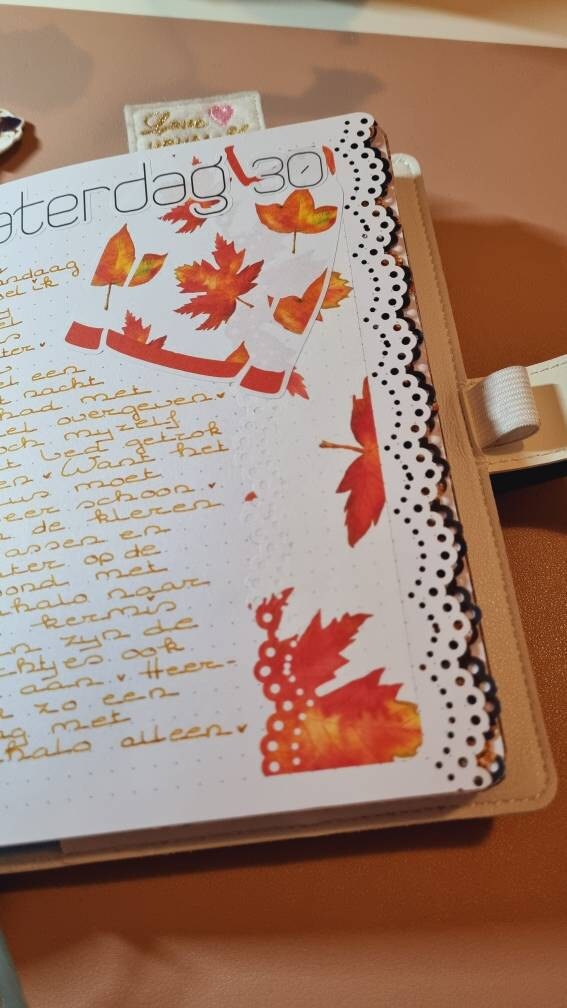 Love
aterdag 30
andaag
el ik
ter.
et een
t nacht
had met
el overgeven.
och myzelf
t bed getrok
en. Want het
us moet
eer schoon.
de kleren
assen en
ater op de
ond met
halo naar
kermis
n zyn de
chtjes ook
aan. Heer-
zo een
ng met
halo alleen